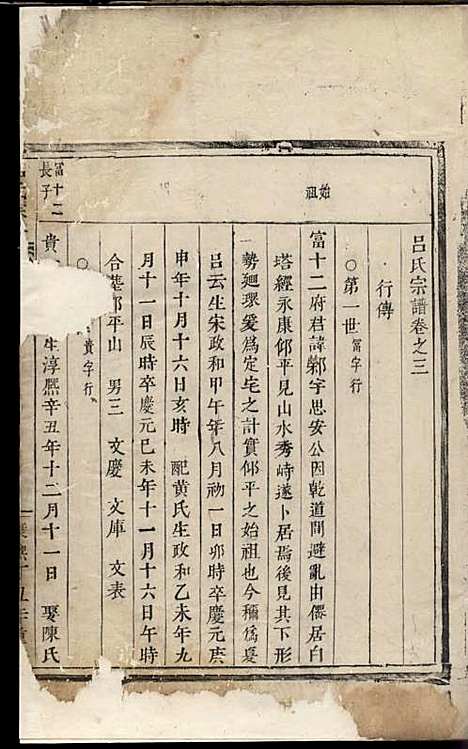 呂氏宗譜卷之三
行傳
○第一世富字行
始祖
富十二府君諱鄴字思安公因乾道間避亂由儒居白
塔經永康仰平見山水秀峙遂卜居焉後見其下形
勢廻環爰為定宅之計實仰平之始祖也今稱為夏
呂云生宋政和甲午年八月初一日卯時卒慶元庚
申年十月十六日亥時 配黃氏生政和乙未年九
月十一日辰時卒慶元己未年十一月十六日午時
合塟仰平山 男三 文慶 文庫 文表
貴字行
富十二
長子
貴 生淳熈辛丑年十二月十一日 娶陳氏